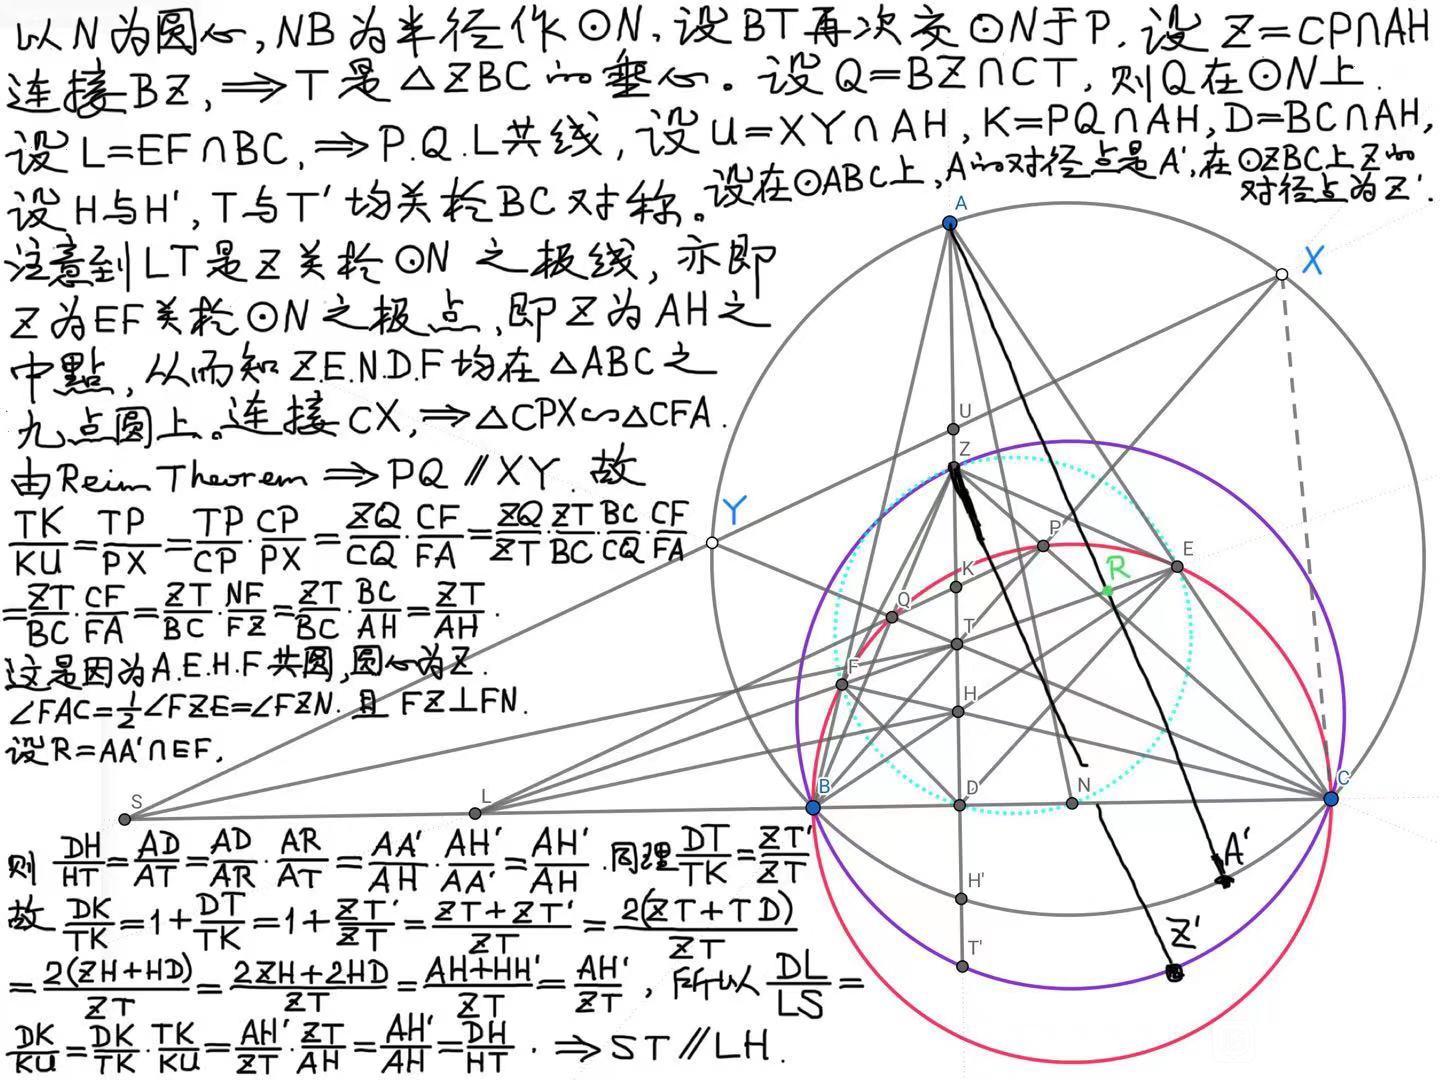 以N为圆心,NB为半径作⊙N,设BT再次交⊙N于P.设 Z=CP∩AH
连接BZ,⟹T是△ZBC的垂心。设Q=BZ∩CT,则Q在⊙N上.
设L=EF∩BC,⟹P.Q.L共线,设U=XY∩AH,K=PQ∩AH,D=BC∩AH,
设H与H',T与T'均关于BC对称。设在⊙ABC上,A的对径点是A',在⊙ZBC上Z的
对径点为Z'.
注意到LT是Z关于⊙N之极线,亦即
Z为EF关于⊙N之极点,即Z为AH之
中點,从而知Z.E.N.D.F均在△ABC之
九点圆上。连接CX,⟹△CPX∽△CFA.
由Reim Theorem⟹PQ∥XY.故
TK/KU=TP/PX=TP/CP·CP/PX=ZQ/CQ·CF/FA=ZQ/ZT·ZT/BC·BC/CQ·CF/FA
=ZT/BC·CF/FA=ZT/BC·NF/FZ=ZT/BC·BC/AH=ZT/AH.
这是因为A.E.H.F共圆,圆心为Z.
∠FAC=1/2∠FZE=∠FZN.且FZ⊥FN.
设R=AA'∩EF,
则 DH/HT=AD/AT=AD/AR·AR/AT=AA'/AH·AH'/AA'=AH'/AH.同理DT/TK=ZT'/ZT
故 DK/TK=1+DT/TK=1+ZT'/ZT=ZT+ZT'/ZT=2(ZT+TD)/ZT
=2(ZH+HD)/ZT=2ZH+2HD/ZT=AH+HH'/ZT=AH'/ZT,所以DL/LS=
DK/KU=DK/TK·TK/KU=AH'/ZT·ZT/AH=AH'/AH=DH/HT.⟹ST∥LH.
A
X
U
Z
Y
P
E
R
K
Q
T
F
H
S
L
B
D
N
C
A'
H'
Z'
T'